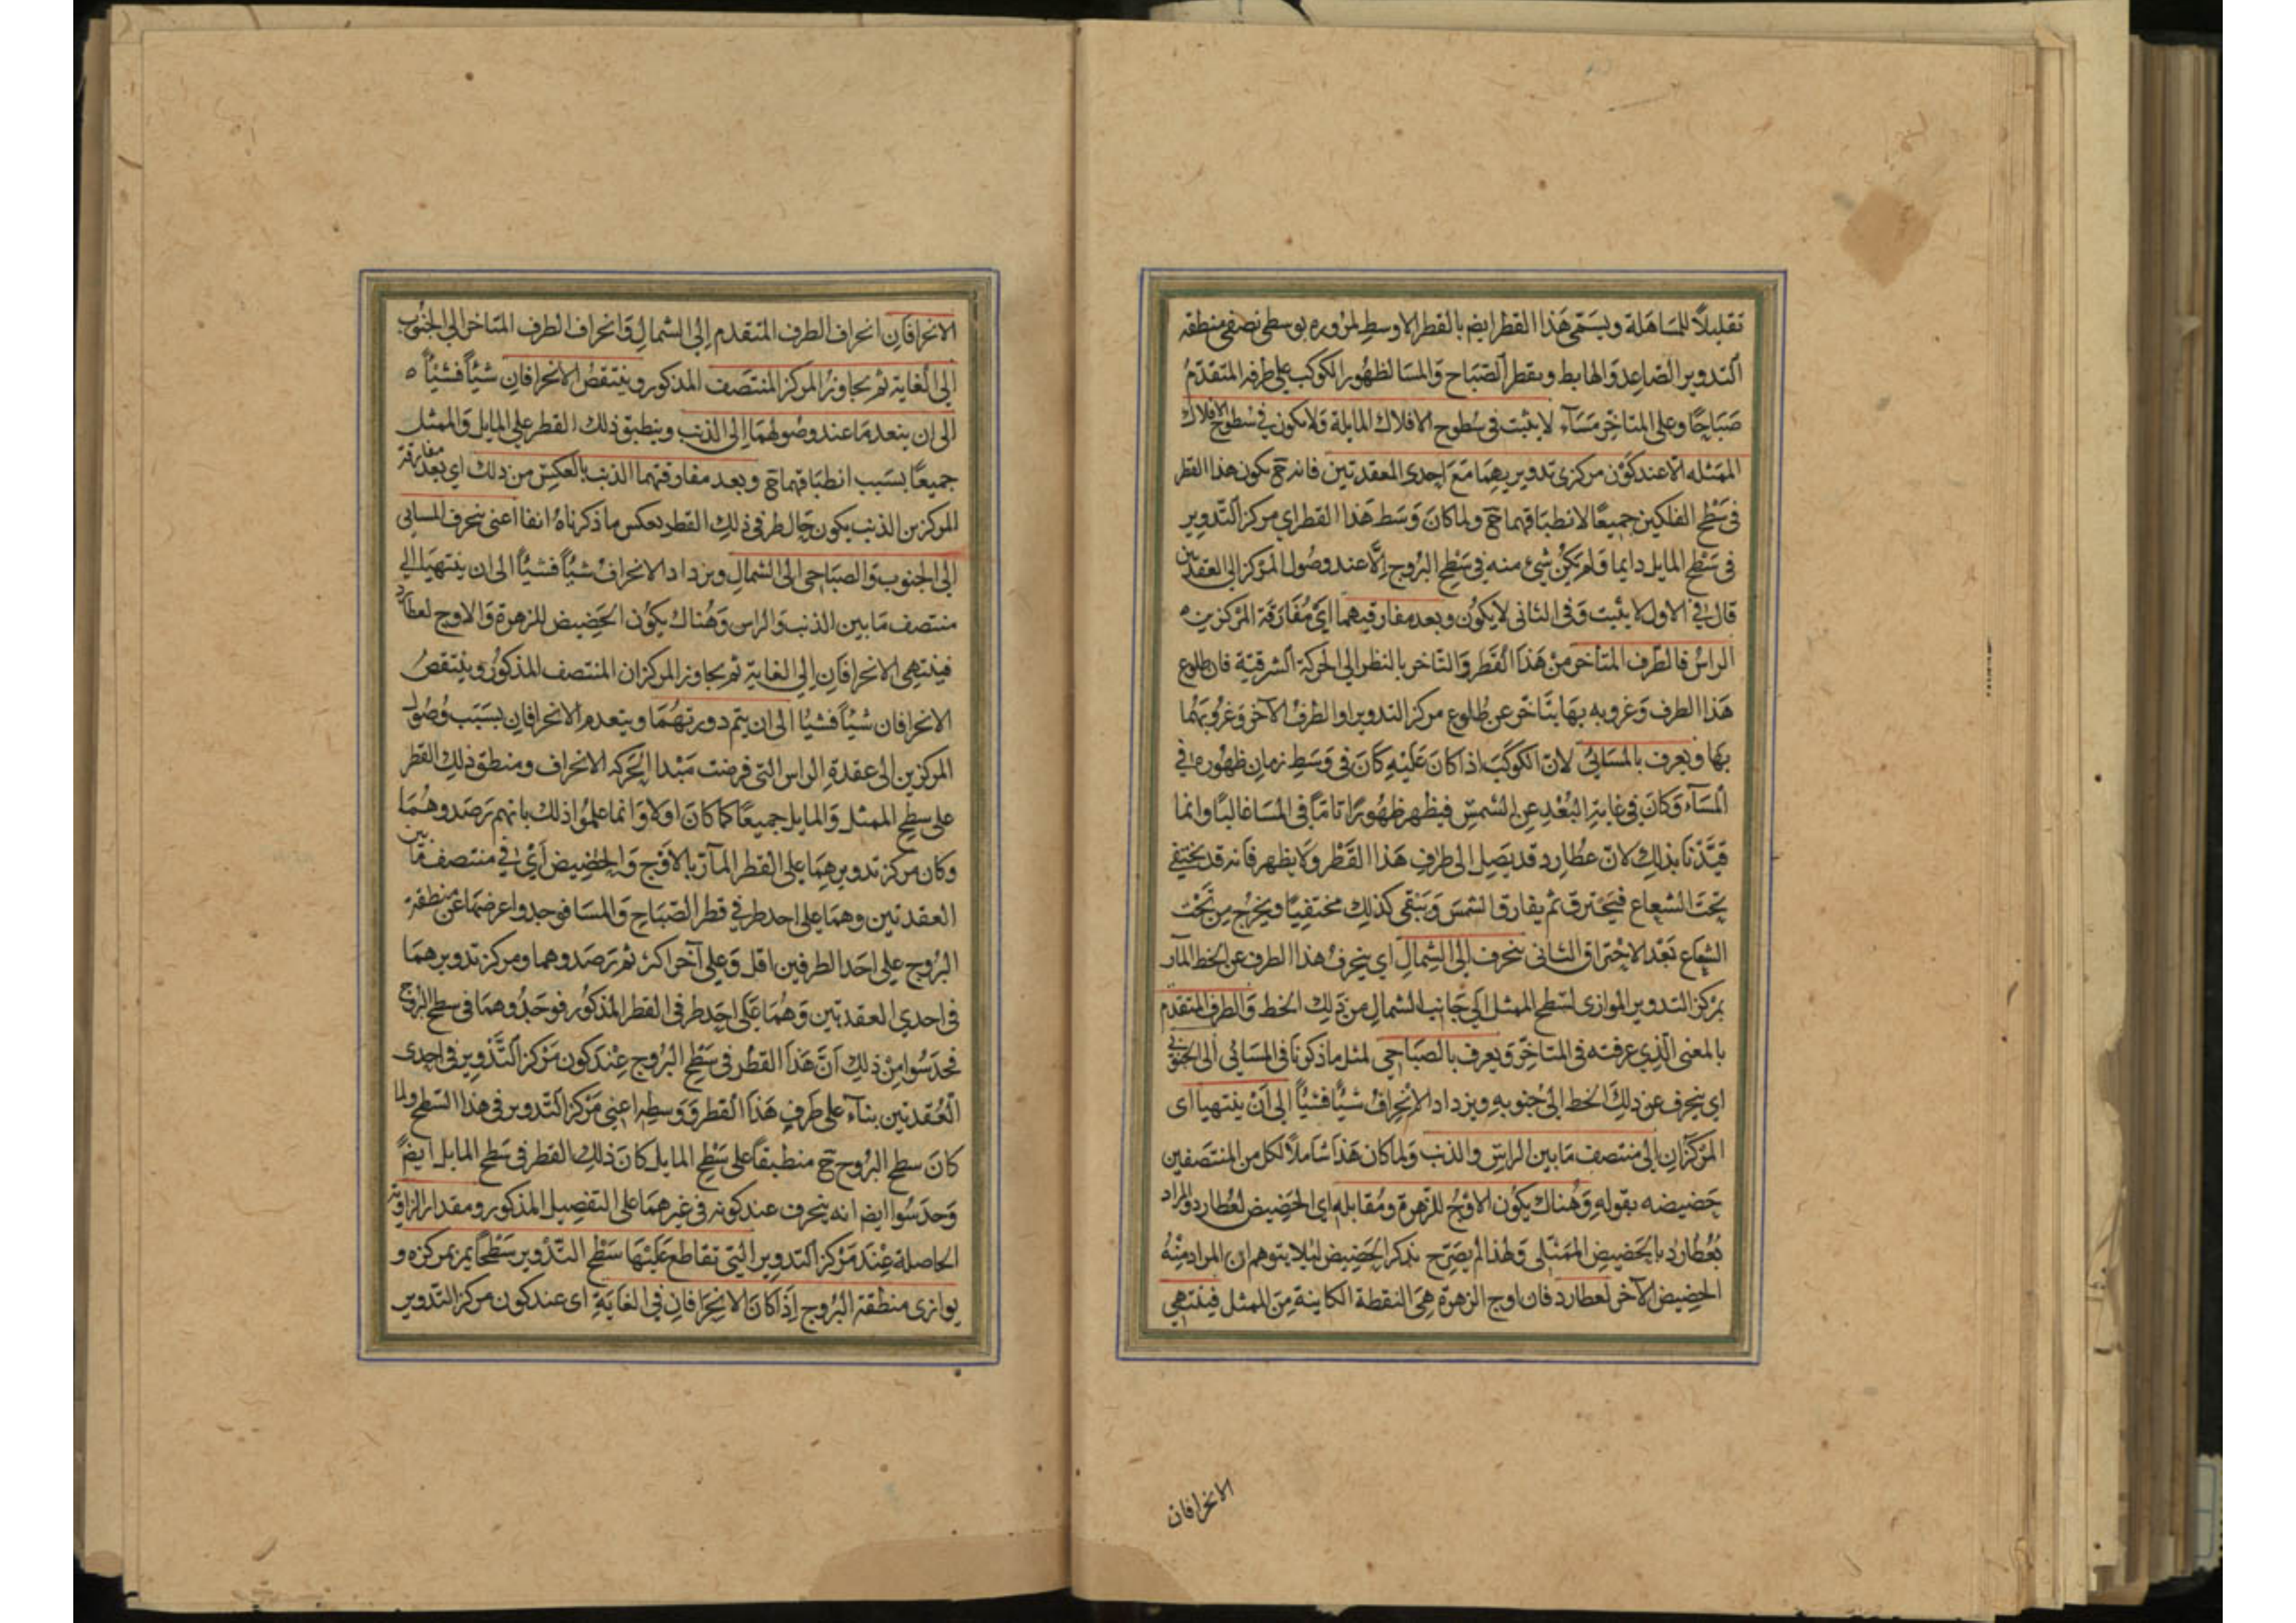 تقليلاً للمساهلة ويسمى هذا القطر ايضا بالقطر الاوسط لمروره بوسطى نصفى منطقة
التدوير الصاعد والهابط وبقطر الصباح والمسا لظهور الكوكب على طرفه المتقدم
صباحًا وعلى المتاخر مسآء لا يثبت فى سطوح الافلاك المايلة ولا يكون فى سطوح الافلاك
الممثله الا عند كون مركزى تدويريهما مع احدى العقدتين فانه ح يكون هذا القطر
فى سطح الفلكين جميعًا لانطباقهما ح ولما كان وسط هذا القطر اي مركز التدوير
فى سطح المايل دايما ولم يكن شىء منه فى سطح البروج الا عند وصول المركز الى العقدتين
قال فى الاول لا يثبت وفى الثانى لا يكون وبعد مفارقيهما اى مفارقة المركزين
الراس فالطرف المتأخر من هذا القطر والتاخر بالنظر الى الحركة الشرقية فان طلوع
هذا الطرف وغروبه بها يتاخر عن طلوع مركز التدوير او الطرف الآخر وغروبهما
بها ويعرف بالمسائى لان الكوكب اذا كان عليه كان فى وسط زمان ظهوره فى
المسآء وكان فى غاية البعد عن الشمس فيظهر ظهورًا تامًا فى المسا غالبًا وانما
قيدنا بذلك لان عطارد قد يصل الى طرف هذا القطر ولا يظهر فانه قد يختفى
تحت الشعاع فيحترق ثم يفارق الشمس ويبقى كذلك مختفيًا ويخرج من تحت
الشعاع بعد الاحتراق الثانى ينحرف الى الشمال اي ينحرف هذا الطرف عن الخط المار
بمركز التدوير الموازى لسطح الممثل الى جانب الشمال من ذلك الخط والطرف المتقدم
بالمعنى الذي عرفته فى المتاخر ويعرف بالصباحي لمثل ما ذكرنا فى المسائى الى الجنوب
اي ينحرف عن ذلك الخط الى جنوبه ويزداد الانحراف شيئًا فشيئًا الى ان ينتهيا اى
المركزان الى منتصف ما بين الراس والذنب ولما كان هذا شاملًا لكل من المنتصفين
خصيصه بقوله وهناك يكون الاوج للزهرة ومقابله اي الحضيض لعطارد والمراد
بعطارد بالحضيض الممثلى ولهذا لم يصرح بذكر الحضيض ليلا يتوهم ان المراد منه
الحضيض الآخر لعطارد فان اوج الزهرة هى النقطة الكاينة من الممثل فينتهي
الانحرافان
الانحرافان انحراف الطرف المتقدم الى الشمال وانحراف الطرف المتاخر الى الجنوب
الى الغاية ثم يجاوز المركز المنتصف المذكور وينتقص الانحرافان شيئًا فشيئًا
الى ان ينعدما عند وصولهما الى الذنب وينطبق ذلك القطر على المايل والممثل
جميعًا بسبب انطباقهما ح وبعد مفارقتهما الذنب بالعكس من ذلك اي بعد مفارقة
المركزين الذنب يكون حال طرفى ذلك القطر بعكس ما ذكرناه انفا اعنى ينحرف المسائى
الى الجنوب والصباحى الى الشمال ويزداد الانحراف شيئًا فشيئًا الى ان ينتهيا الى
منتصف ما بين الذنب والراس وهناك يكون الحضيض للزهرة والاوج لعطارد
فينتهى الانحرافان الى الغاية ثم يجاوز المركزان المنتصف المذكور وينتقص
الانحرافان شيئًا فشيئًا الى ان يتم دورتهما وينعدم الانحرافان بسبب وصول
المركزين الى عقدة الراس التى فرضت مبدا لحركة الانحراف ومنطبق ذلك القطر
على سطح الممثل والمايل جميعًا كما كان اولا وانما علموا ذلك بانهم رصدوهما
وكان مركز تدويرهما على القطر المآر بالاوج والحضيض اي فى منتصف ما بين
العقدتين وهما على احد طرفى قطر الصباح والمسا فوجدوا عرضهما عن منطقة
البروج على احد الطرفين اقل وعلى آخر اكثر ثم رصدوهما ومركز تدويرهما
فى احدي العقدتين وهما على احد طرفى القطر المذكور فوجدوهما فى سطح البروج
فحدسوا من ذلك ان هذا القطر فى سطح البروج عند كون مركز التدوير فى احدى
العقدتين بناء على طرف هذا القطر ووسطه اعنى مركز التدوير فى هذا السطح ولما
كان سطح البروج ح منطبقًا على سطح المايل كان ذلك القطر فى سطح المايل ايضًا
وحدسوا ايضا انه ينحرف عند كونه فى غيرهما على التفصيل المذكور ومقدار الزاوية
الحاصلة عند مركز التدوير التى تقاطع عليها سطح التدوير سطحًا يمر بمركزه و
يوازى منطقة البروج اذا كان الانحرافان فى الغاية اى عند كون مركز التدوير